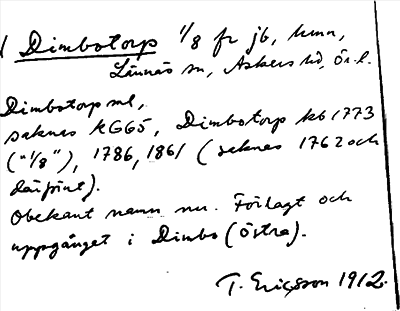 Dimbotorp 1/8 fr jb, kmn,
Lännäs sn, Askers hd, Ör. l.
Dimbotorp ml,
saknas KG65, Dimbotorp kb 1773
("1/8"), 1786, 1861 (saknas 1762 och
därförut).
Obekant namn nu. Förlagt och
uppgånget i Dimbo (Östra).
T. Ericsson 1912.